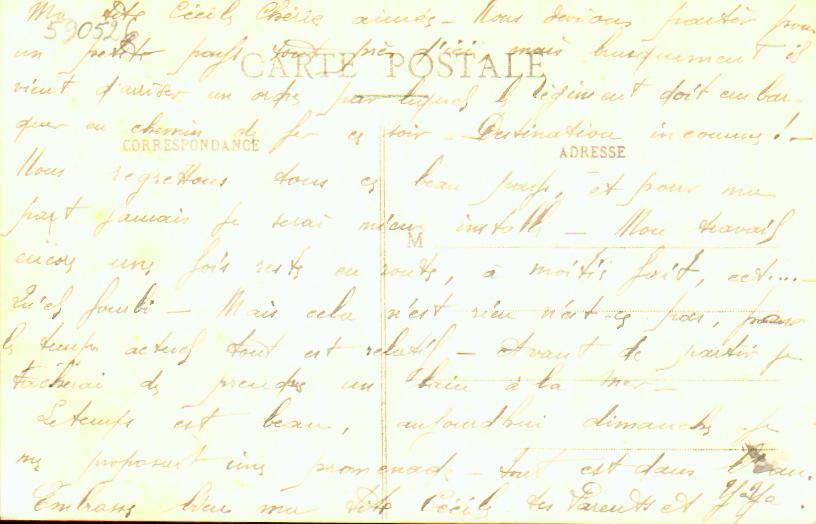 Ma ptite Cécile Chérie aimée - Nous devions partir pour
59052
un petit pays tout près d'ici, mais brusquement il
CARTE POSTALE
vient d'arriver un ordre par lequel le régiment doit embar-
quer en chemin de fer ce soir - Destination inconnue ! -
CORRESPONDANCE
ADRESSE
Nous regrettons tous ce beau pays, et pour ma
part jamais je serai mieux installé - Mon travail
M
encore une fois reste en route, à moitié fait, ect....-
Qu'el fourbi - Mais cela n'est rien n'est-ce pas, 
le temps actuel tout est relatif - Avant de partir je
tacherai de prendre un bain à la mer -
Le temps est beau, aujourd'hui dimanche je
me proposait une promenade - tout est dans l'eau.
Embrasse bien ma ptite Cécile tes Parents et YaYa.